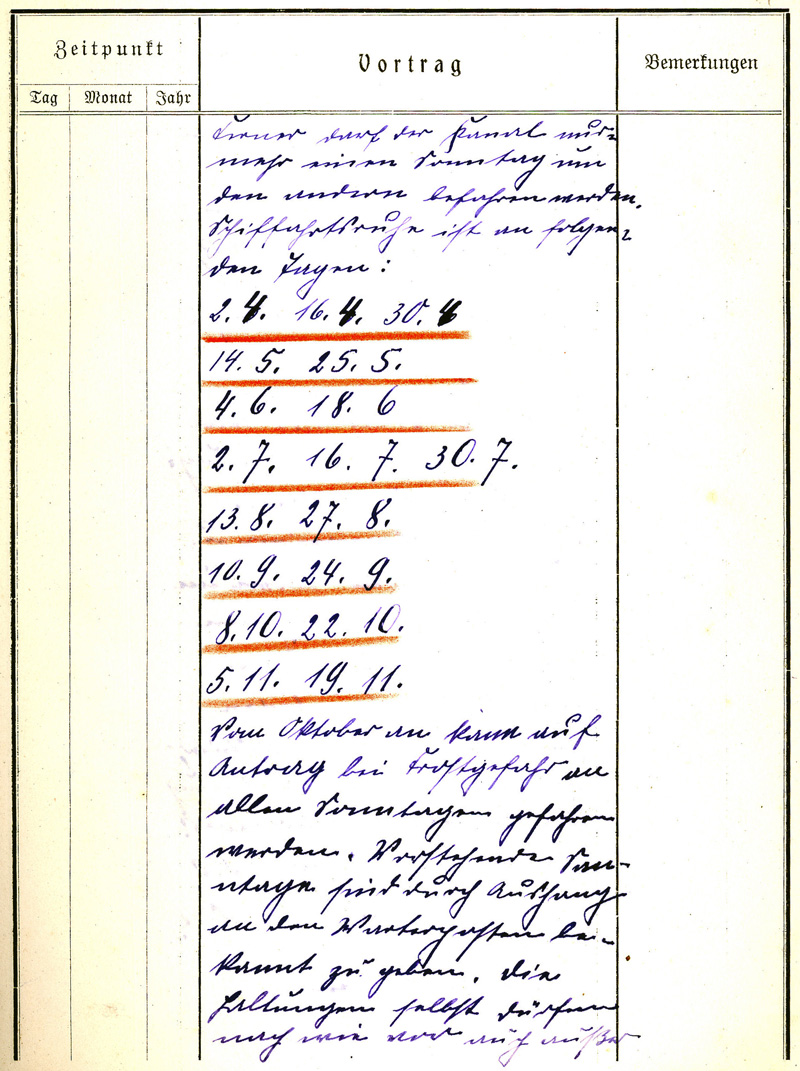 Zeitpunkt
Vortrag
Bemerkungen
Tag Monat Jahr
Ferner darf der Kanal nur-
mehr einen Sonntag um
den andern befahren werden.
Schiffahrtsruhe ist an folgen-
den Tagen:
2. 4. 16. 4. 30. 4
14. 5. 25. 5.
4. 6. 18. 6
2. 7. 16. 7. 30. 7.
13. 8. 27. 8.
10. 9. 24. 9.
8. 10. 22. 10.
5. 11. 19. 11.
Vom Oktober an kann auf
Antrag bei Frostgefahr an
allen Sonntagen gefahren
werden. Vorstehende Son-
ntage sind durch Aushang
an den Wartposten be-
kannt zu geben. Die
Haltungen selbst dürfen
nach wie vor auch außer